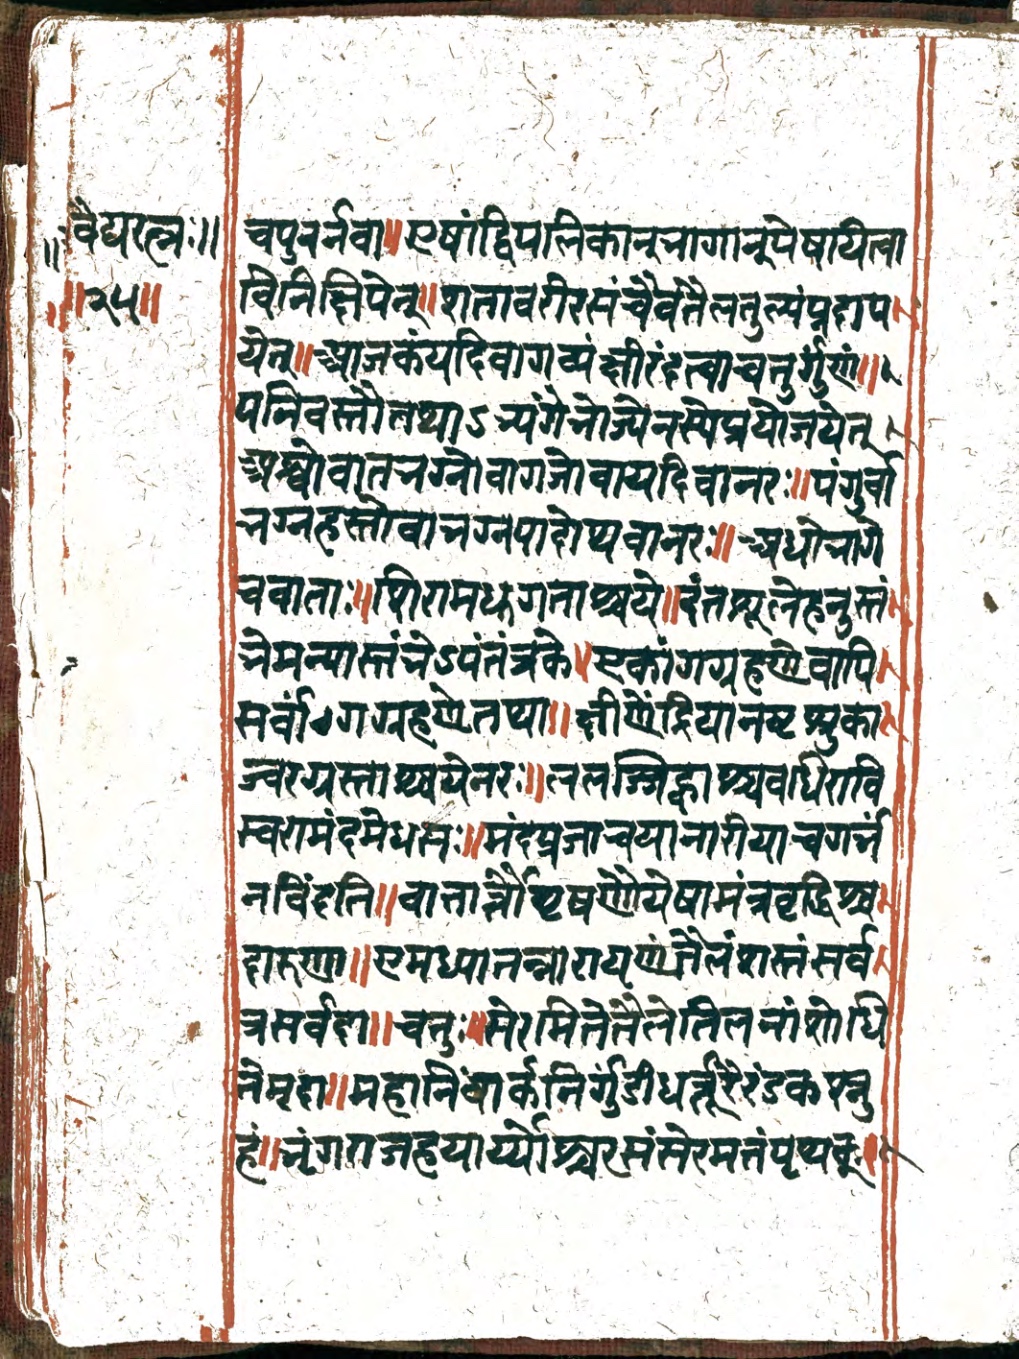 ॥वैद्यरत्नः॥
॥२५॥
चपुनर्नवा॥एषांद्विपलिकान्भागान्पेषयित्वा
विनिक्षिपेत्॥शतावरीरसंचैवतैलतुल्यंप्रदाप
येत्॥आजकंयदिवागव्यंक्षीरंदत्वाचतुर्गुणं॥
पनेवस्तौतथाऽभ्यंगेभोज्येनस्येप्रयोजयेत्
अश्वोवातभग्नोवागजोवायदिवानरः॥पंगुर्वा
भग्नहस्तौवाभग्नपादोप्यवानरः॥अधोभागे
चवाताः॥शिरामध्यगताश्चये॥दंतशूलेहनुस्तं
भेमन्यास्तंभेऽपतंत्रके॥एकांगग्रहणेवापि
सर्वांगग्रहणेतथा॥क्षीणेंद्रियानष्टशुका
ज्वरग्रस्ताश्चयेनरः॥ललज्जिह्वाश्चवधिरावि
स्वरामंदमेधसः॥मंदप्रजाचयानारीयाचगर्भं
नविंदति॥वातार्त्तौवृषणौयेषामंत्रवृद्धिश्च
दारुणा॥एमध्पातन्नारायणंतैलंशस्तंसर्व
त्रसर्वदा॥चतुः॥सेरमितेतैलेतिलनांशोधि
तेमृदा॥महानिंबार्कनिर्गुंडीधर्त्तूरैरंडकस्नु
हं॥भृंगराजहयार्य्योश्चरसंसेरमतंपृथक्॥